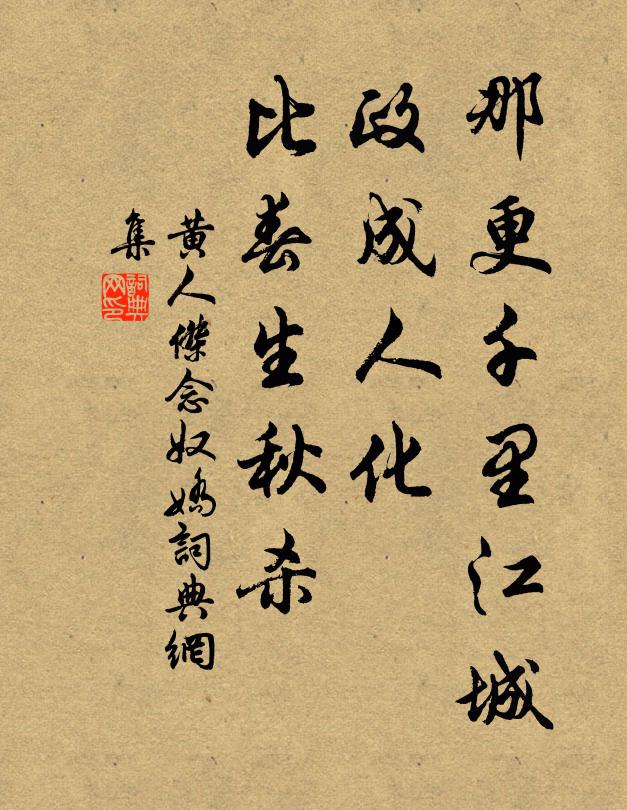 那更千里江城
政成人化
比春生秋杀
黄人傑念奴嬌詞典網
集
詞典網印